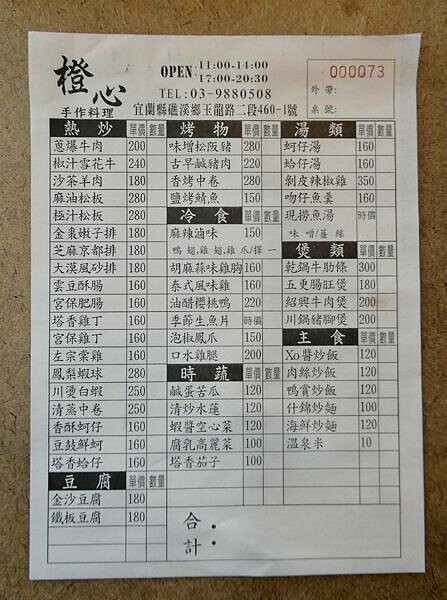 橙心
手作料理
OPEN 11:00-14:00
17:00-20:30
TEL:03-9880508
宜蘭縣礁溪鄉玉龍路二段460-1號
000073
外帶:
桌號:
熱炒 單價 數量
蔥爆牛肉 200
椒汁雪花牛 240
沙茶羊肉 180
麻油松板 280
極汁松板 280
金棗嫩子排 180
芝麻京都排 180
大漠風砂排 180
雲豆酥腸 160
宮保肥腸 160
塔香雞丁 160
宮保雞丁 160
左宗棠雞 160
鳳梨蝦球 280
川燙白蝦 250
清蒸中卷 250
香酥蚵仔 160
豆鼓鮮蚵 160
塔香蛤仔 160
豆腐 單價 數量
金沙豆腐 180
鐵板豆腐 180
烤物 單價 數量
味增松阪豬 280
古早鹹豬肉 220
香烤中卷 280
鹽烤鯖魚 150
冷食 單價 數量
麻辣滷味 150
鴨翅.雞翅.雞爪/擇一
胡麻蒜味雞胸 160
泰式風味雞 160
油醋櫻桃鴨 220
季節生魚片 時價
泡椒鳳爪 150
口水雞腿 200
時蔬 單價 數量
鹹蛋苦瓜 120
清炒水蓮 120
蝦醬空心菜 120
腐乳高麗菜 100
塔香茄子 100
湯類 單價 數量
蚵仔湯 160
蛤仔湯 160
剝皮辣椒雞 350
吻仔魚羹 160
現撈魚湯 時價
味噌/薑絲
煲類 單價 數量
乾鍋牛肋條 300
五更腸旺煲 180
紹興牛肉煲 200
川鍋豬腳煲 200
主食 單價 數量
Xo醬炒飯 120
肉絲炒飯 120
鴨賞炒飯 120
什錦炒麵 100
海鮮炒麵 120
溫泉米 10
合計: